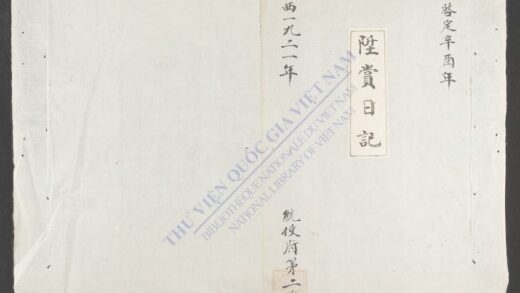 啓定辛酉年
陞賞日記
西一九二一年
統使府第二
THƯ VIỆN QUỐC GIA VIỆT NAM
BIBLIOTHÈQUE NATIONALE DU VIETNAM
NATIONAL LIBRARY OF VIETNAM